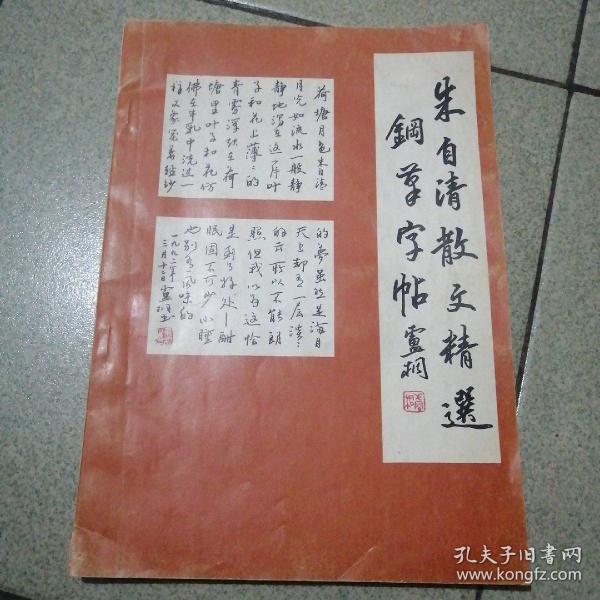 朱自清散文精選
鋼筆字帖 盧桐
荷塘月色朱自清
月光如流水一般静
静地泻在这一片叶
子和花上薄薄的
青雾浮起在荷
塘里叶子和花仿
佛在牛乳中洗过一
样又象笼着轻纱
的夢虽然是滿月
天上却有一层淡淡
的云所以不能朗
照但我以为这恰
是到了好处—酣
眠固不可少小睡
也别有风味的
一九九二年
三月十二日盧桐
孔夫子旧書网
www.kongfz.com